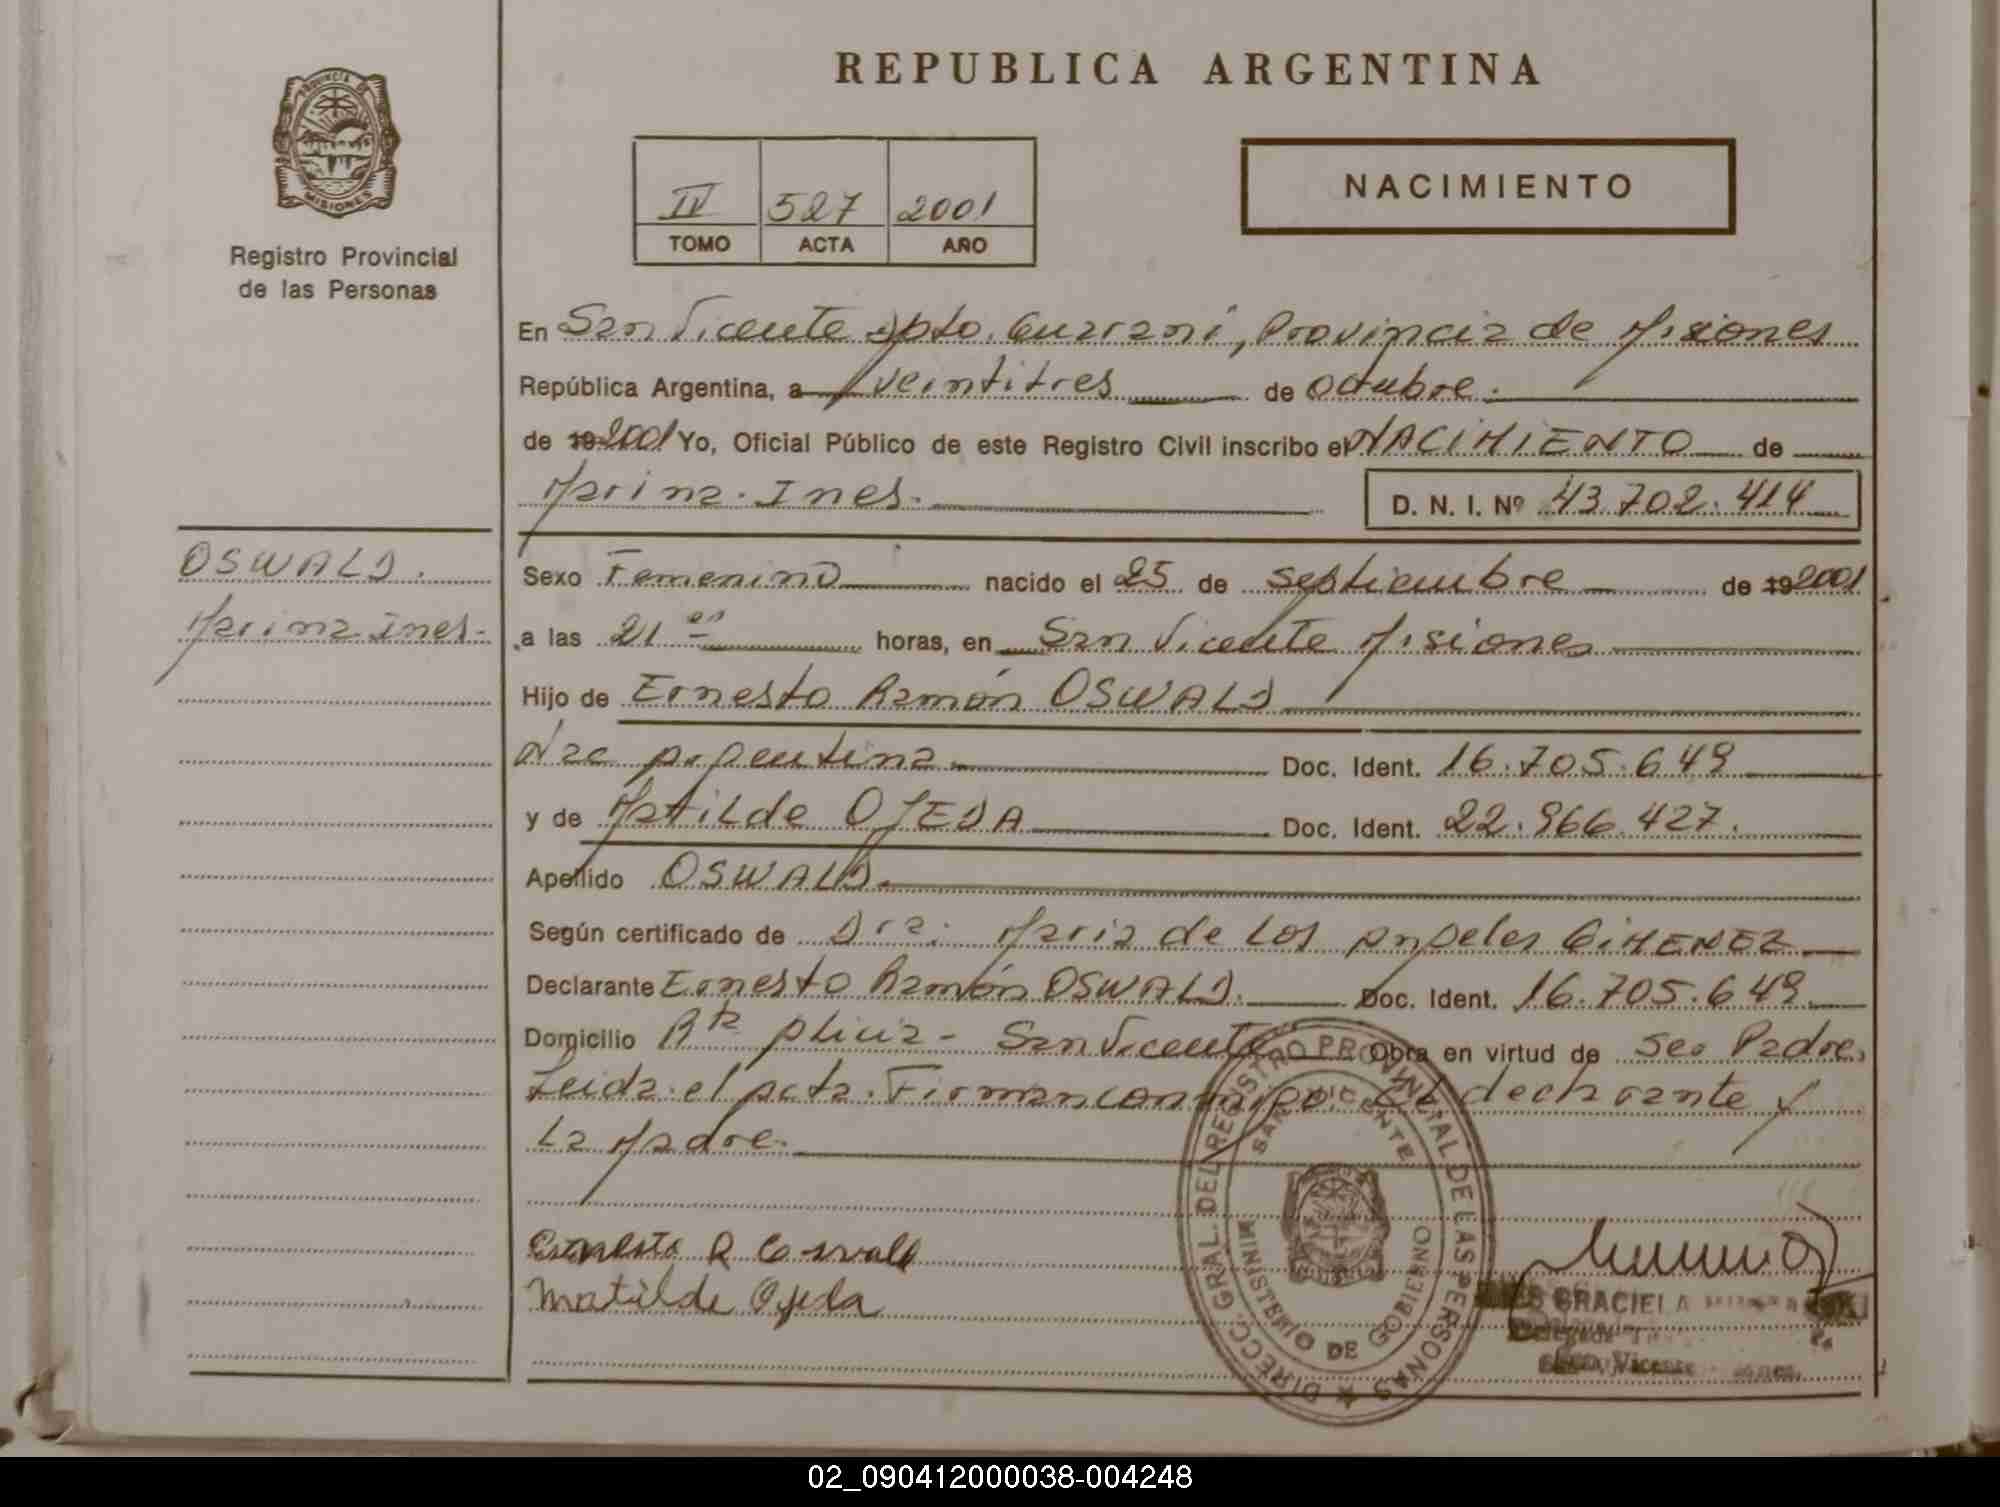 REPUBLICA ARGENTINA
PROVINCIA DE
MISIONES
Registro Provincial
de las Personas
IV 527 2001
TOMO ACTA AÑO
NACIMIENTO
En San Vicente Dpto. Guarani, Provincia de Misiones
República Argentina, a veintitres de octubre.
de 19 2001 Yo, Oficial Público de este Registro Civil inscribo el NACIMIENTO de
Marina Ines. D. N. I. Nº 43.702.414
OSWALD.
Marina Ines.-
Sexo Femenino nacido el 25 de septiembre de 19 2001
a las 21 horas, en San Vicente Misiones
Hijo de Ernesto Ramón OSWALD
Nac Argentina Doc. Ident. 16.705.649
y de Matilde OJEDA Doc. Ident. 22.966.427.
Apellido OSWALD.
Según certificado de Dra. Maria de Los Angeles GiMENEZ
Declarante Ernesto Ramón OSWALD. Doc. Ident. 16.705.649.
Domicilio San Vicente Obra en virtud de Ser Padre.
Leida el acta. Firman conmigo. El declarante y
La Madre.
Ernesto R Oswald
Matilde Ojeda
DIRECC. GRAL. DEL REGISTRO PROVINCIAL DE LAS PERSONAS
SAN VICENTE
MINISTERIO DE GOBIERNO
GRACIELA
Delegada
San Vicente
02_090412000038-004248